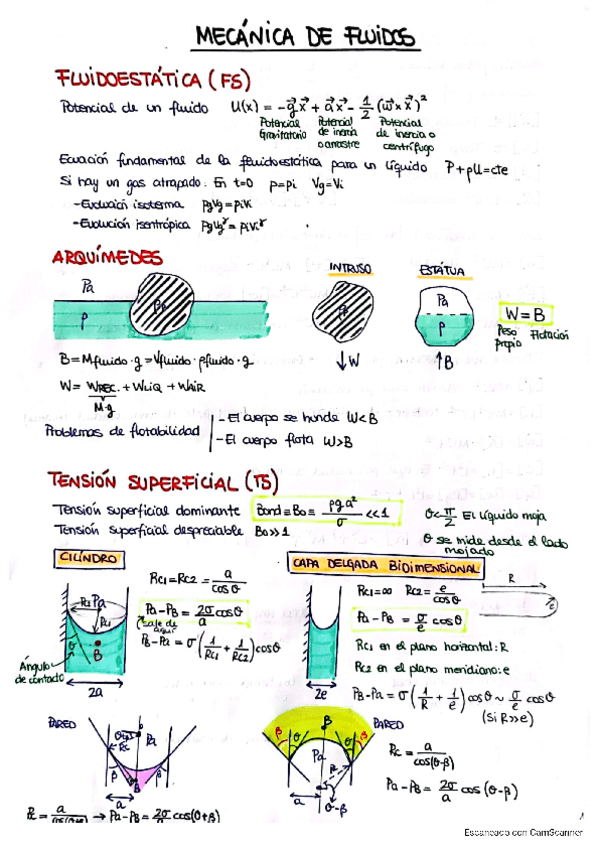 MECÁNICA DE FLUIDOS
FLUIDOESTÁTICA (FS)
Potencial de un fluido U(x) = -g⃗x⃗ + a⃗x⃗ - 1/2 (ω⃗ x x⃗)²
Potencial Gravitatorio Potencial de inercia o arrastre Potencial de inercia o centrífugo
Ecuación fundamental de la fluidoestática para un líquido P+ρU=cte
Si hay un gas atrapado: En t=0 p=pi Vg=Vi
-Evolución isoterma pgVg=piVi
-Evolución isentrópica pgVgᵞ=piViᵞ
ARQUÍMEDES
INTRUSO
ESTÁTUA
Pa
ρ
Pa
ρ
W = B
Peso Propio Flotación
↓W
↑B
B = Mfluido·g = Vfluido·ρfluido·g
W = WREC. + WLIQ + WAIR
M·g
Problemas de flotabilidad
- El cuerpo se hunde W<B
- El cuerpo flota W>B
TENSIÓN SUPERFICIAL (TS)
Tensión superficial dominante Bond ≡ Bo ≡ ρga²/σ <<1
θ<π/2 El líquido moja
Tensión superficial despreciable Bo>>1
θ se mide desde el lado mojado
CILINDRO
RC1=RC2= a/cosθ
Pa-PB = 2σ/a cosθ
PB-Pa = σ(1/RC1 + 1/RC2)cosθ
Ángulo de contacto
2a
CAPA DELGADA BIDIMENSIONAL
R
e
RC1=∞ RC2= e/cosθ
Pa-PB = σ/e cosθ
RC1 en el plano horizontal: R
RC2 en el plano meridiano: e
PB-Pa = σ(1/R + 1/e) cosθ ~ σ/e cosθ
(Si R>>e)
2e
PARED
Rc
Pa
β
θ
B
a
Rc = a/cos(θ+β) → Pa-PB = 2σ/a cos(θ+β)
PARED
β
θ
B
Pa
a
θ-β
Rc = a/cos(θ-β)
Pa-PB = 2σ/a cos(θ-β)
1
Escaneado con CamScanner